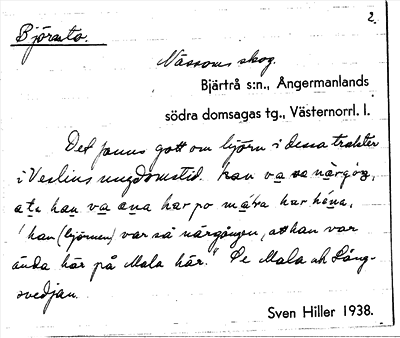 2.
Björnsto.
Nässoms skog.
Bjärtrå s:n., Ångermanlands
södra domsagas tg., Västernorrl. l.
Det fanns gott om björn i dessa trakter
i Veslins ungdomstid. han va så närgöŋ,
han va har po har
"han (björnen) var så närgången, att han var
ända här på Mala här." Se Mala och Lång-
svedjan.
Sven Hiller 1938.